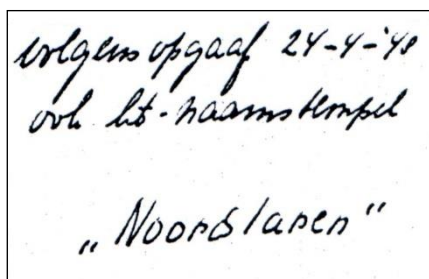 volgens opgaaf 24-4-'48
ook bt-naamstempel
„Noordlaren"